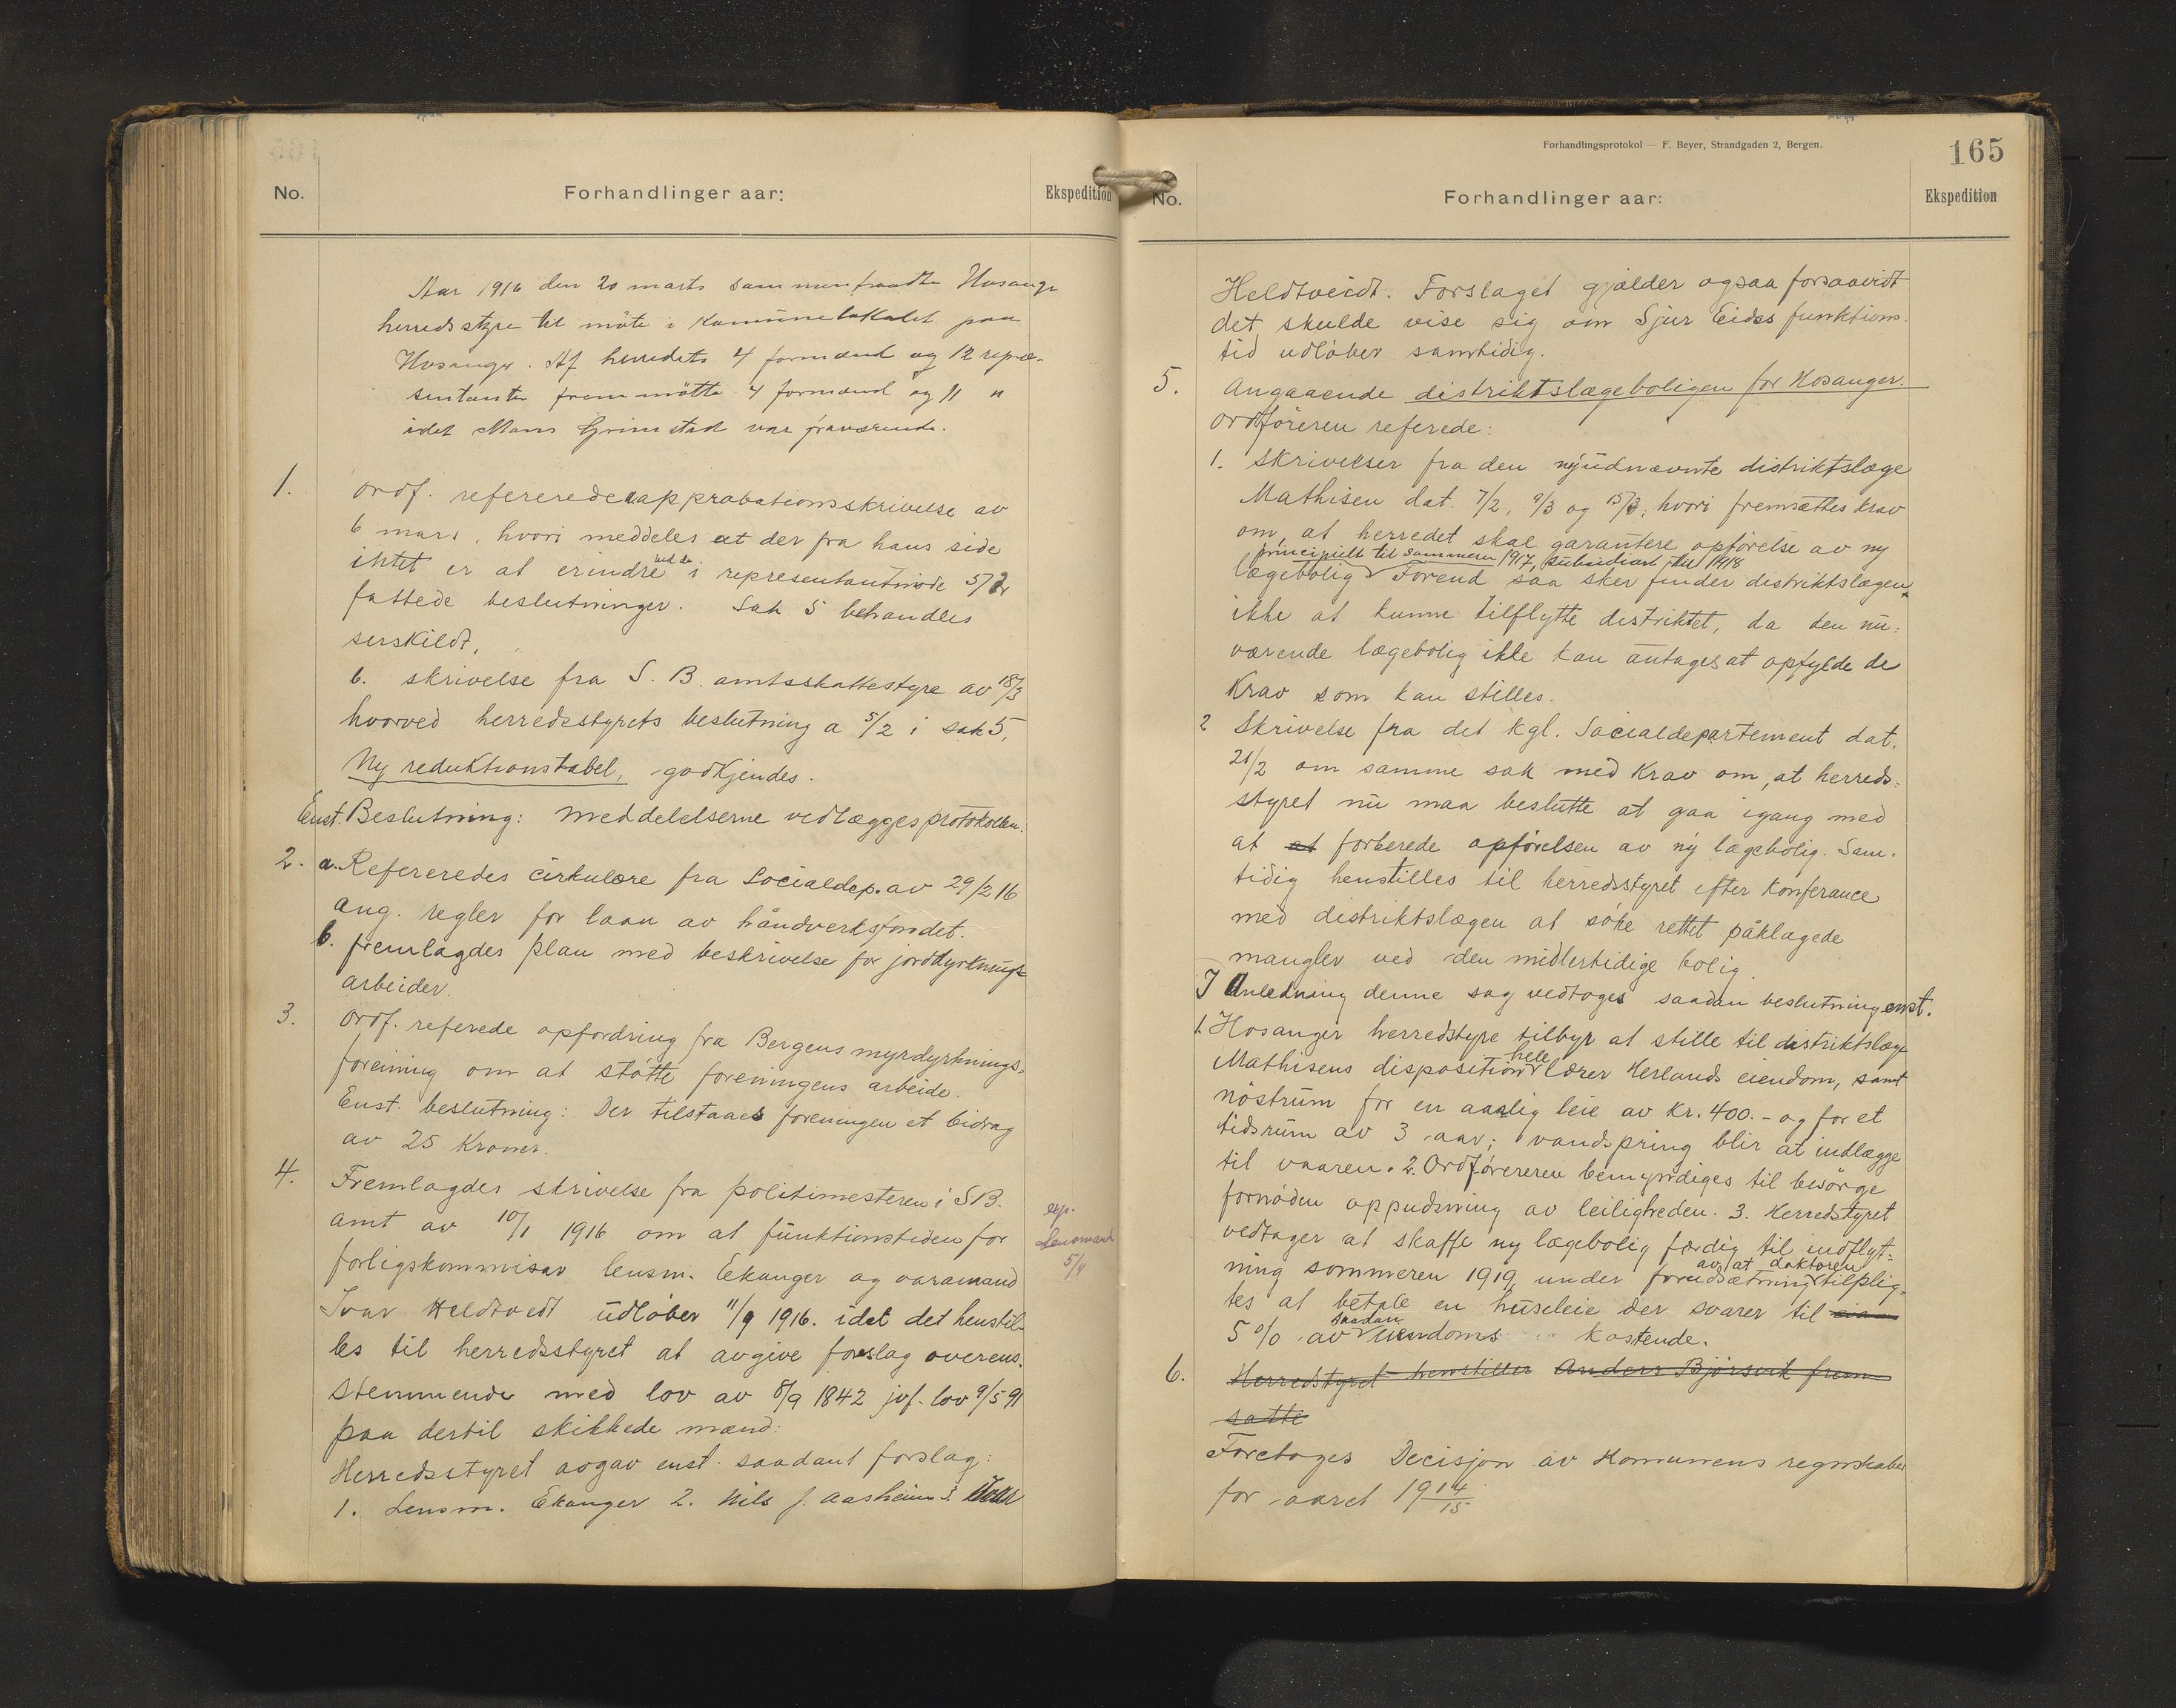 No.
Forhandlinger aar:
Ekspedition
Aar 1916 den 20 marts sammentraadte Hosanger
herredsstyre til möte i Kommunelokalet paa
Hosanger. Af herredets 4 formænd og 12 repræ-
sentanter fremmötte 4 formænd og 11 "
idet Mons Grimstad var fraværende.
1. Ordf. refererede approbationsskrivelse av
6 mars, hvori meddeles at der fra hans side
intet er at erindre ved de i representantmöde 5/2
fattede beslutninger. Sak 5 behandles
serskildt.
b. skrivelse fra S. B. amtsskattestyre av 18/3
hvorved herredsstyrets beslutning a 5/2 i sak 5,
Ny reduktionstabel, godkjendes.
Enst. Beslutning: Meddelelserne vedlægges protokollen.
2. a. Refereredes cirkulære fra Socialdep. av 29/2 16
ang. regler for laan av håndverksfondet.
b. fremlagdes plan med beskrivelse for jorddyrknings-
arbeider.
3. Ordf. referede opfordring fra Bergens myrdyrknings-
forening om at stötte foreningens arbeide.
Enst. beslutning: Der tilstaaes foreningen et bidrag
av 25 Kroner.
4. Fremlagdes skrivelse fra politimesteren i SB.
amt av 10/1 1916 om at funktionstiden for
forligskommisær lensm. Eekanger og varamand
Ivar Heldtvedt udlöber 11/9 1916. idet det henstil-
les til herredsstyret at avgive forslag overens-
stemmende med lov av 8/9 1842 jvf. lov 9/5 91
paa dertil skikkede mænd:
Herredsstyret avgav enst. saadant forslag:
1. Lensm. Ekanger 2. Nils J. Aasheim 3. Ivar
exp.
Lensmand
5/4
Forhandlingsprotokol — F. Beyer, Strandgaden 2, Bergen.
165
No.
Forhandlinger aar:
Ekspedition
Heldtveidt. Forslaget gjælder ogsaa forsaavidt
det skulde vise sig om Sjur Eides funktions-
tid udlöber samtidig.
5. Angaaende distriktslægeboligen for Hosanger.
Ordföreren referede:
1. Skrivelser fra den nyudnævnte distriktslæge
Mathisen dat. 7/2, 9/3 og 15/3, hvori fremsættes krav
om, at herredet skal garantere opförelse av ny
principielt til sommeren 1917, subsidiært til 1918
lægebolig Forend saa sker finder distriktslægen
ikke at kunne tilflytte distriktet, da den nu-
værende lægebolig ikke kan antages at opfylde de
Krav som kan stilles.
2 Skrivelse fra det kgl. Socialdepartement dat.
21/2 om samme sak med Krav om, at herreds-
styret nu maa beslutte at gaa igang med
at at forberede opförelsen av ny lægebolig. Sam-
tidig henstilles til herredsstyret efter konferance
med distriktslægen at söke rettet påklagede
mangler ved den midlertidige bolig.
I Anledning denne sag vedtoges saadan beslutning enst.
1. Hosanger herredstyre tilbyr at stille til distriktslæge
Mathisens disposition hele Lærer Herlands eiendom, samt
nöstrum for en aarlig leie av Kr. 400.- og for et
tidsrum av 3 aar; vandspring blir at indlægge
til vaaren. 2. Ordförereren bemyndiges til besörge
fornöden oppudsning av leiligheden. 3. Herredstyret
vedtager at skaffe ny lægebolig færdig til indflyt-
ning sommeren 1919, under forudsætning av, at doktoren tilplig-
tes at betale en husleie der svarer til
5 % av saadan eiendoms kostende.
6. Herredstyret henstiller Anders Björsvik frem-
satte
Foretoges Decisjon av Komunens regnskaber
for aaret 1914/15